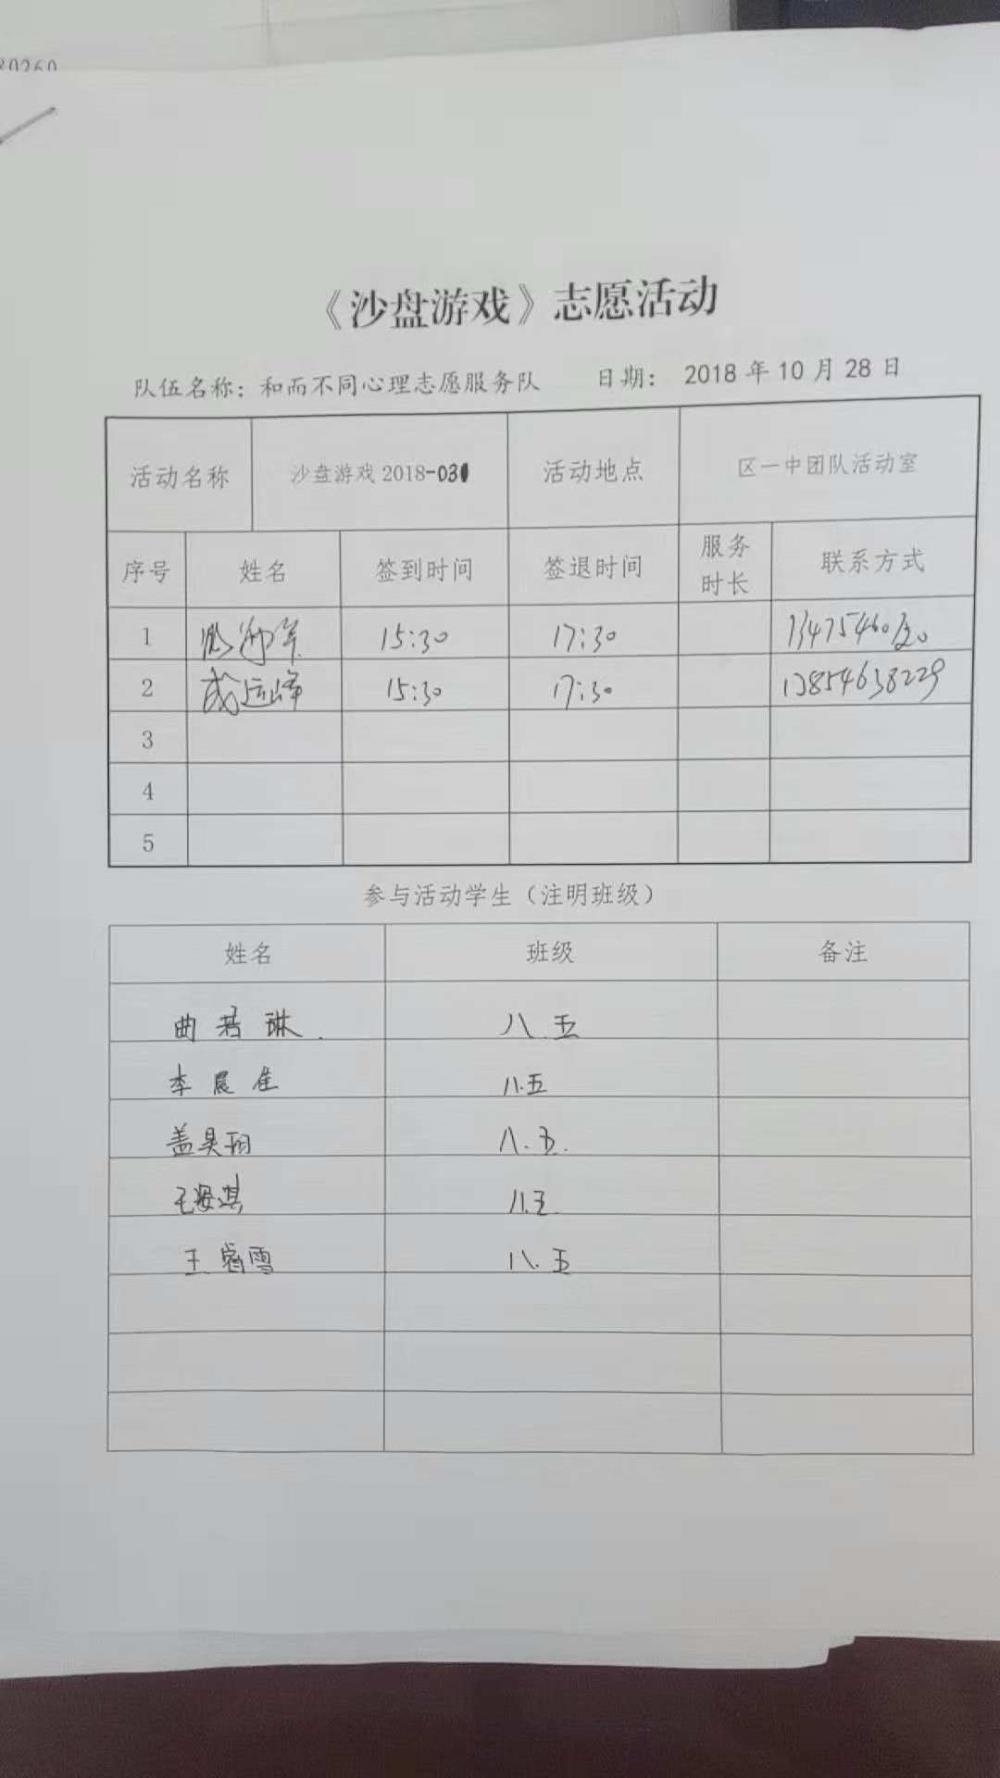 《沙盘游戏》志愿活动
队伍名称：和而不同心理志愿服务队 日期： 2018 年 10 月 28 日
活动名称 沙盘游戏 2018-031 活动地点 区一中团队活动室
序号 姓名 签到时间 签退时间 服务时长 联系方式
1 15:30 17:30
2 成运峰 15:30 17:30 13854638229
3
4
5
参与活动学生（注明班级）
姓名 班级 备注
曲若琳. 八.五
李晨佳 八.五
盖昊玥 八.五.
王婴淇 八.五
王睿雪 八.五